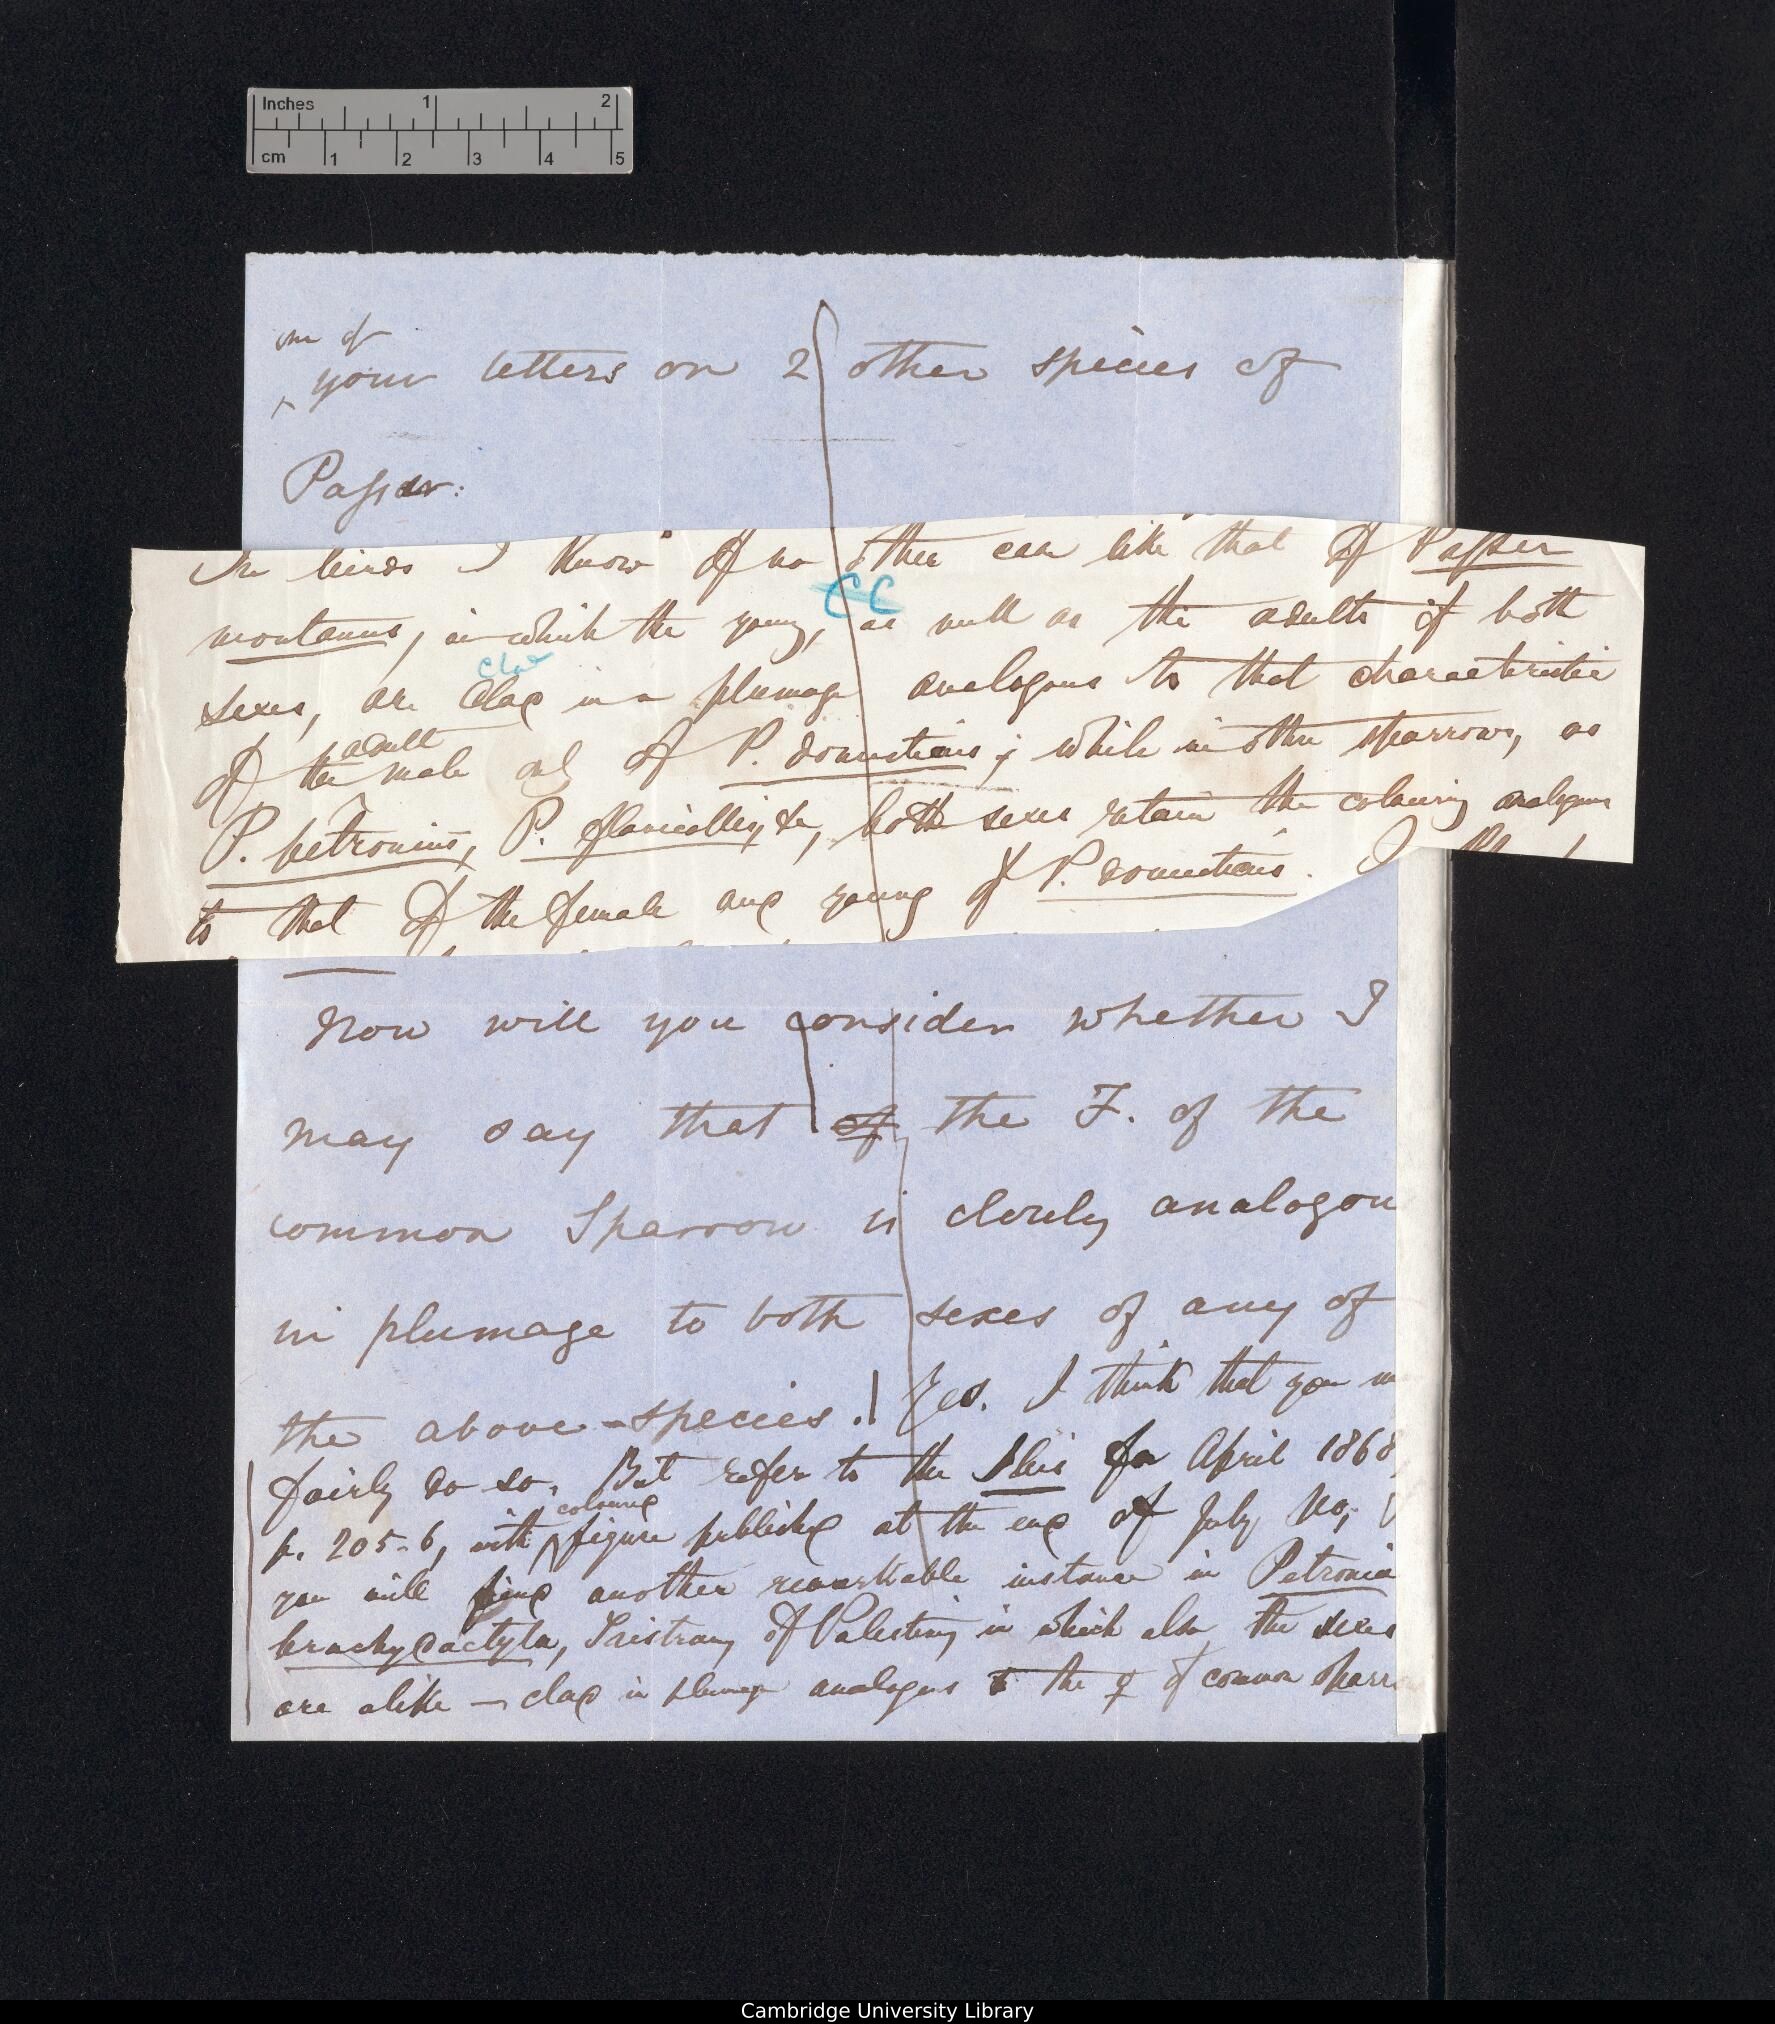 Inches 1 2
cm 1 2 3 4 5
one of
your letters on 2 other species of
Passer:
In birds I know of no other case like that of Passer
CC
montanus, in which the young, as well as the adults of both
clad
sexes, are clad in a plumage analogous to that characteristic
adult
of the male only of P. domesticus; while in other sparrows, as
P. petronius, P. flavicollis, &c, both sexes retain the colouring analogous
to that of the female and young of P. domesticus. I
Now will you consider whether I
may say that of the F. of the
common Sparrow is closely analogou
in plumage to both sexes of any of
the above species.| Yes. I think that you m
fairly do so. But refer to the Ibis for April 1868,
coloured
p. 205-6, with figure published at the end of July No;
you will find another remarkable instance in Petronia
brachydactyla, Tristram, of Palestine, in which also the sexes
are alike — clad in plumage analogous to the ♀ of common sparr
Cambridge University Library